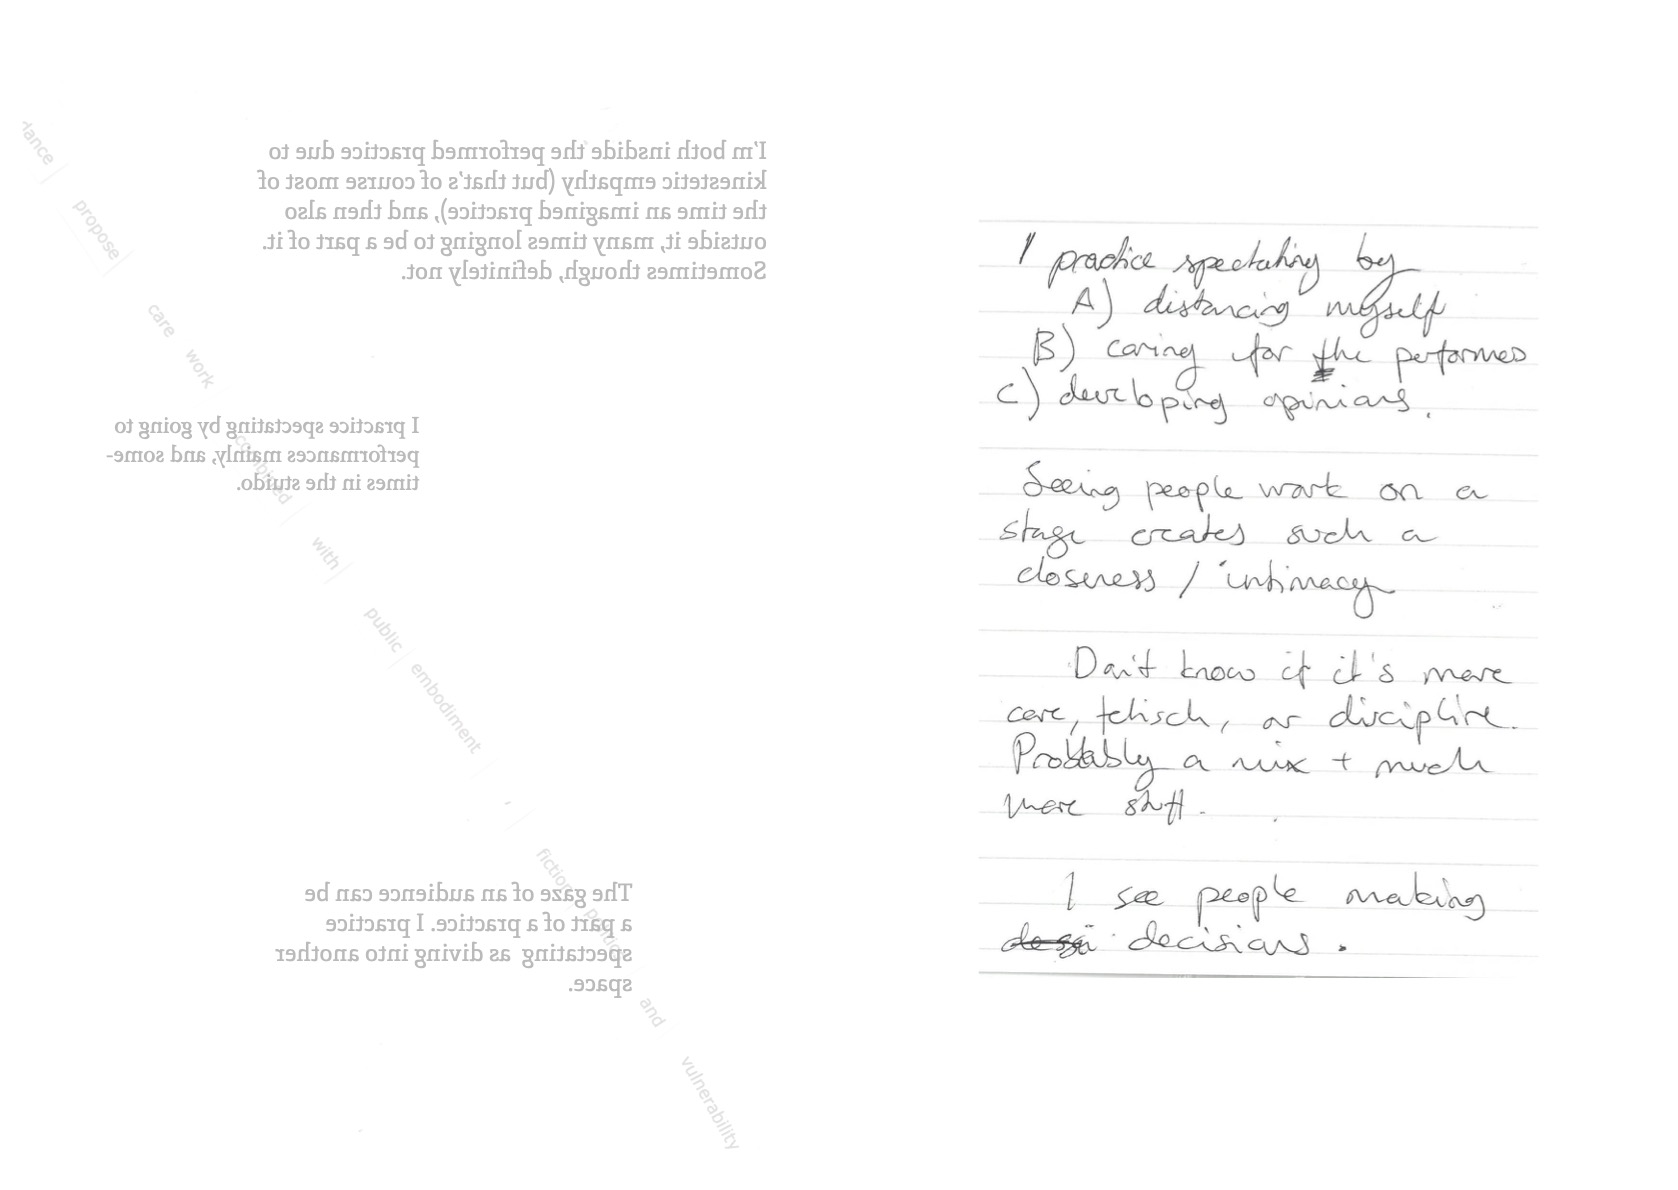 I'm both insdide the performed practice due to
kinestetic empathy (but that's of course most of
the time an imagined practice), and then also
outside it, many times longing to be a part of it.
Sometimes though, definitely not.
I practice spectating by going to
performances mainly, and some-
times in the studio.
The gaze of an audience can be
a part of a practice. I practice
spectating as diving into another
space.
propose care work combined with public embodiment , fiction, and vulnerability
I practice spectating by
A) distancing myself
B) caring for the performes
C) developing opinions.
Seeing people work on a
stage creates such a
closeness / intimacy
Don't know if it's more
care, fetisch, or discipline.
Probably a mix + much
more stuff.
I see people making
decisions.